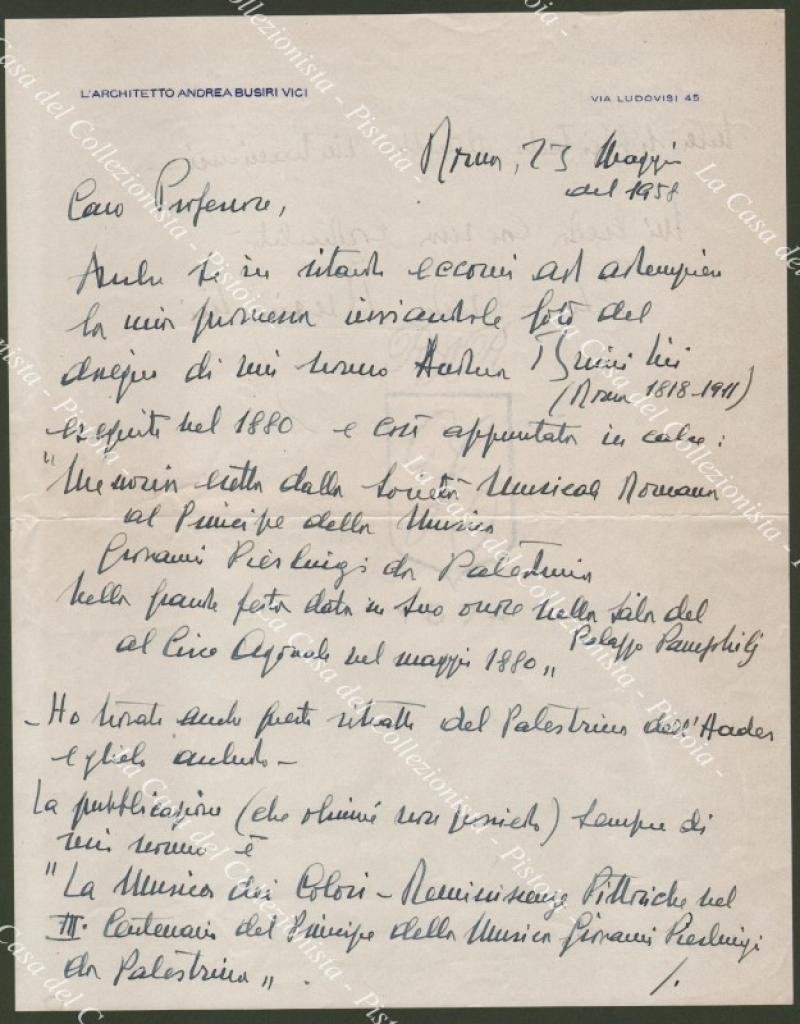 L'ARCHITETTO ANDREA BUSIRI VICI
VIA LUDOVISI 45
Roma, 23 Maggio
del 1958
Caro Professore,
Anche se in ritardo eccomi ad adempiere
la mia promessa inviandole foto del
disegno di mio nonno Andrea Busiri Vici
(Roma 1818-1911)
eseguito nel 1880 e così appuntato in calce:
"Memoria eretta dalla Società Musicale Romana
al Principe della Musica
Giovanni Pierluigi da Palestrina
nella grande festa data in suo onore nella Sala del
Palazzo Pamphilj
al Circo Agonale nel maggio 1880"
- Ho trovato anche questo ritratto del Palestrina dell'
e glielo accludo -
La pubblicazione (che ohimé non possiedo) sempre di
mio nonno è
"La Musica dei Colori - Reminiscenze Pittoriche nel
III. Centenario del Principe della Musica Giovanni Pierluigi
da Palestrina".
/.
La Casa del Collezionista - Pistoia -